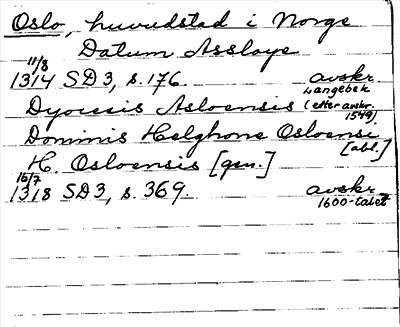 Oslo, huvudstad i Norge
Datum Assloye
11/8
1314 SD3, s. 176. avskr.
Langebek
Dyocesis Asloensis (efter avskr.
1549)
Dominis Helghone Osloensi
[abl.]
H. Osloensis [gen.]
16/7
1318 SD3, s. 369. avskr.
1600-talet